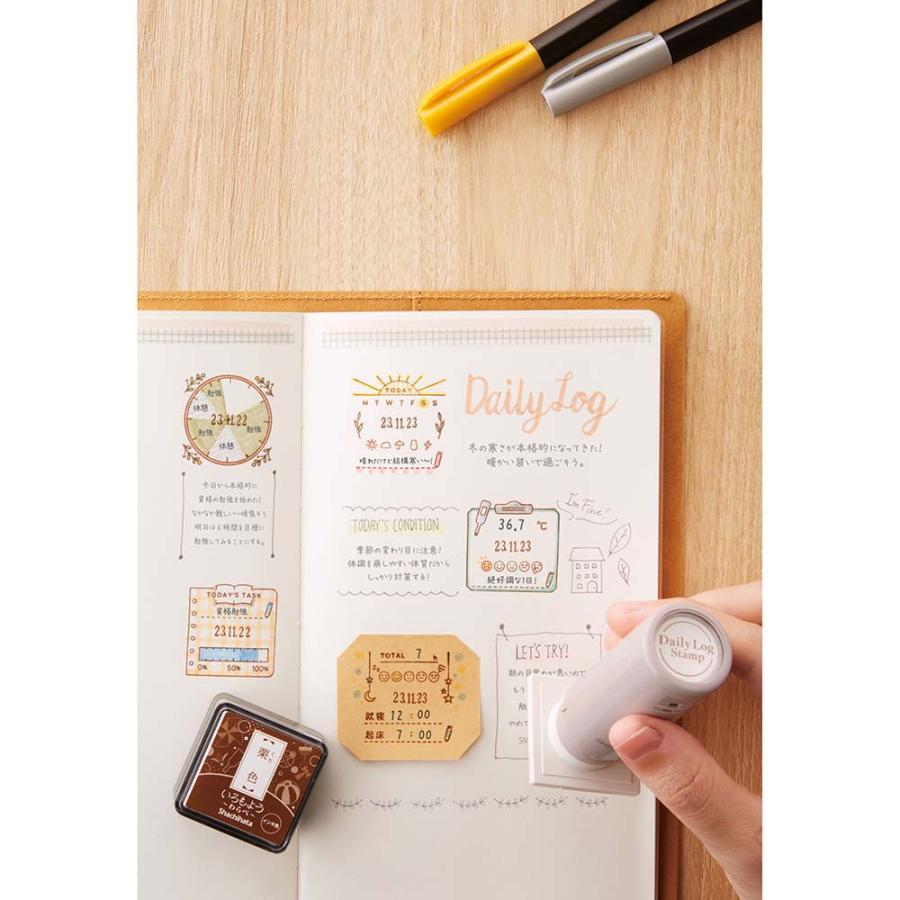 勉強
休憩
23.11.22
勉強
勉強
休憩
今日から本格的に
資格の勉強を始めた!
なかなか難しい…頑張ろう
明日は6時間を目標に
勉強してみることにする。
TODAY'S TASK
資格勉強
23.11.22
0% 50% 100%
TODAY
M T W T F S S
23.11.23
晴れだけど結構寒い〜!
Daily Log
冬の寒さが本格的になってきた!
暖かい装いで過ごそう。
TODAY'S CONDITION
季節の変わり目に注意!
体調を崩しやすい体質だから
しっかり対策する!
36.7 ℃
23.11.23
絶好調な1日!
I'm Fine!
TOTAL 7 h
23.11.23
就寝 12:00
起床 7:00
LET'S TRY!
Daily Log
Stamp
栗色
くり
いろもよう
~わらべ~
Shachihata